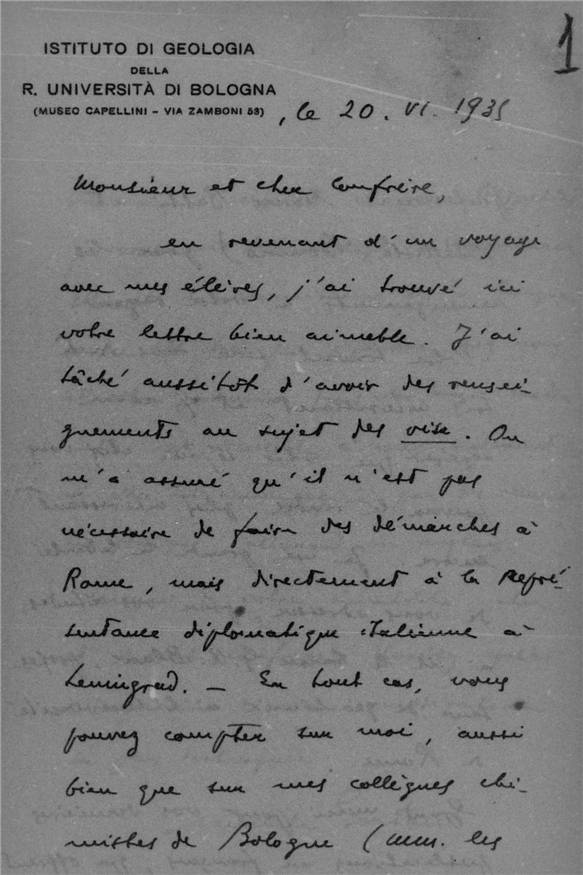 1
ISTITUTO DI GEOLOGIA
DELLA
R. UNIVERSITÀ DI BOLOGNA
(MUSEO CAPELLINI - VIA ZAMBONI 53)
, le 20. VI. 1935
Monsieur et cher Confrère,
en revenant d'un voyage
avec mes élèves, j'ai trouvé ici
votre lettre bien aimable. J'ai
tâché aussitôt d'avoir des rensei-
gnements au sujet des visa. On
m'a assuré qu'il n'est pas
nécessaire de faire des démarches à
Rome, mais directement à la Repré-
sentance diplomatique italienne à
Leningrad. — En tout cas, vous
pouvez compter sur moi, aussi
bien que sur mes collègues chi-
mistes de Bologne (MM. les